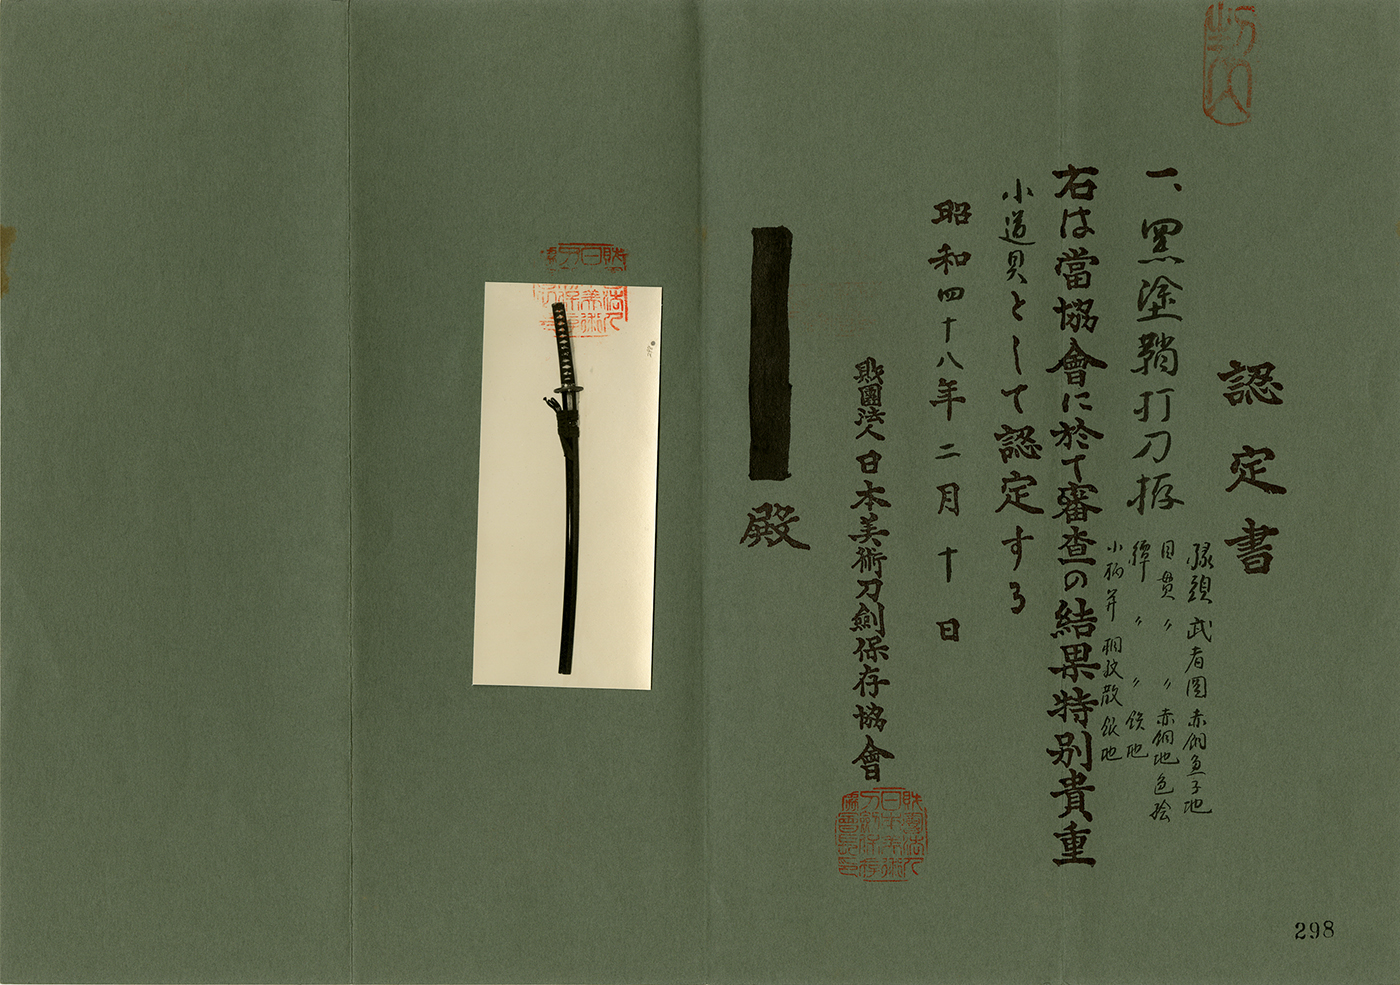 認定書
一、黒塗鞘打刀拵
縁頭武者図赤銅魚子地
目貫〃〃赤銅地色絵
鐔〃〃鉄地
小柄笄桐紋散銀地
右は當協會に於て審査の結果特別貴重
小道具として認定する
昭和四十八年二月十日
財團法人日本美術刀劍保存協會
殿
298